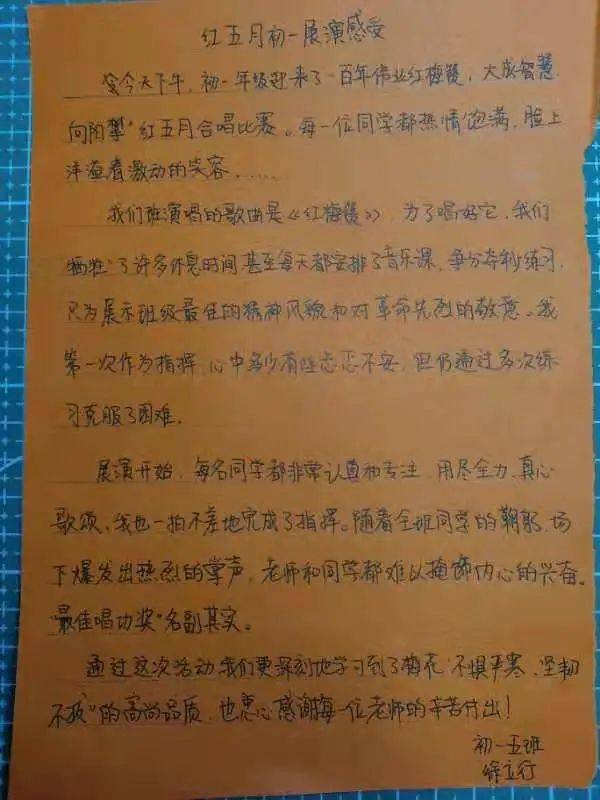 红五月初一展演感受
今天下午，初一年级迎来了“百年伟业红梅赞，大成智慧
向阳攀”红五月合唱比赛。每一位同学都热情饱满，脸上
洋溢着激动的笑容……
我们班演唱的歌曲是《红梅赞》，为了唱好它，我们
“牺牲”了许多休息时间甚至每天都安排了音乐课，争分夺秒练习，
只为展示班级最佳的精神风貌和对革命先烈的敬意。我
第一次作为指挥，心中多少有些忐忑不安，但仍通过多次练
习克服了困难。
展演开始，每名同学都非常认真和专注，用尽全力、真心
歌颂，我也一拍不差地完成了指挥。随着全班同学的鞠躬，场
下爆发出热烈的掌声，老师和同学都难以掩饰内心的兴奋。
“最佳唱功奖”名副其实。
通过这次活动我们更深刻地学习到了梅花“不惧严寒、坚韧
不拔”的高尚品质，也衷心感谢每一位老师的辛苦付出！
初一五班
徐立行